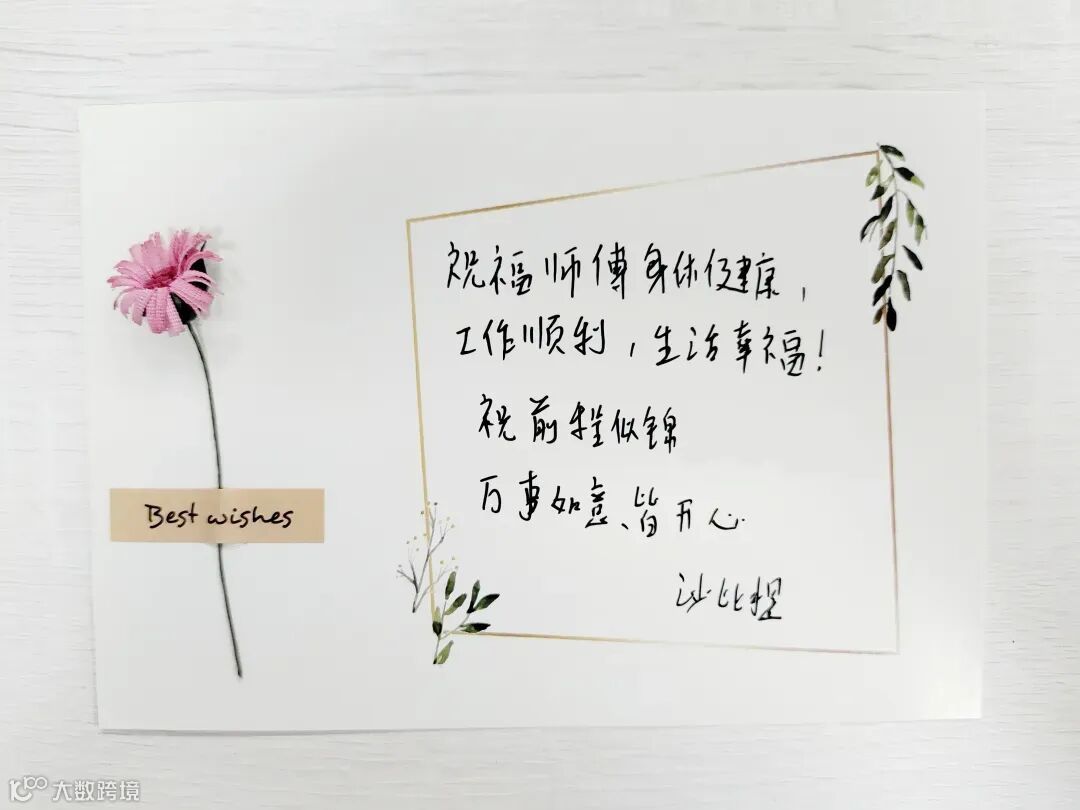 祝福师傅身体健康，
工作顺利，生活幸福！
祝前程似锦
万事如意、皆开心
沙比提
Best wishes
大数跨境